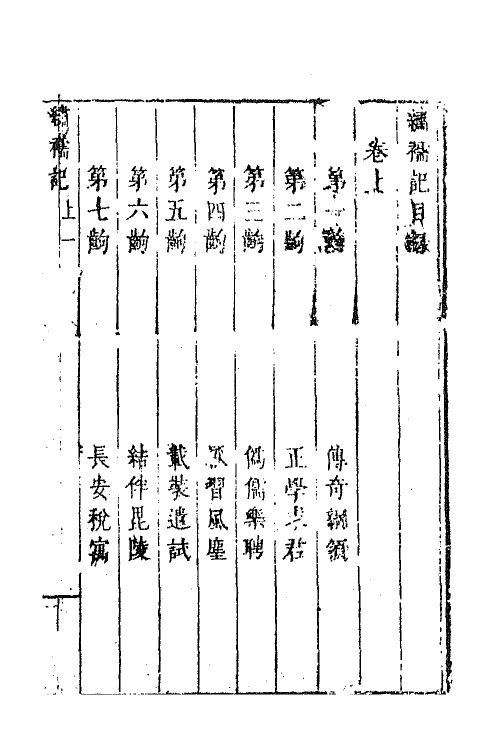 繡襦記目錄
卷上
第一齣 傳奇綱領
第二齣 正學求君
第三齣 僞儒樂聘
第四齣 習風塵
第五齣 載裝遣試
第六齣 結伴毘陵
第七齣 長安稅寓
繡襦記 上 一